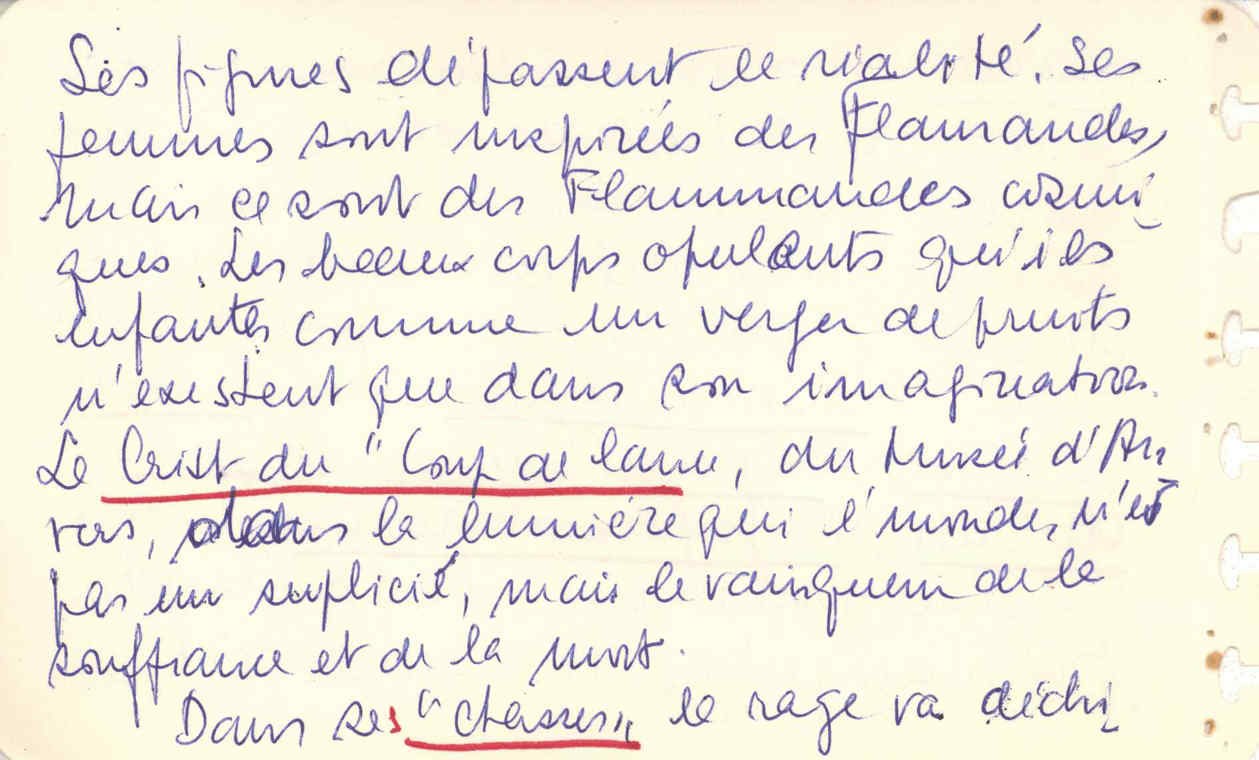 Ses figures dépassent le réalité. Ses
femmes sont inspirées des Flamandes,
mais ce sont des Flammandes cosmi-
ques. Les beaux corps opulents qu'ils
enfantes comme un verger de fruits
n'existent que dans son imagination.
Le Crist du "Coup de lance, du Musée d'An-
vers, dans la lumière qui l'inonde, n'est
pas un suplicié, mais le vainqueur de la
souffrance et de la mort.
Dans ses "Chasses" la rage va déchi-